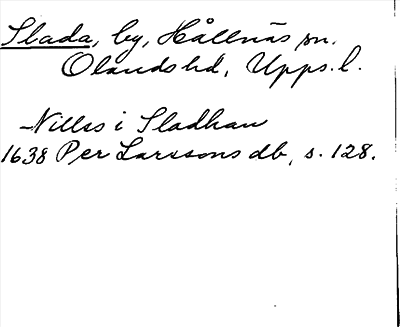 Slada, by, Hållnäs sn.
Olands hd, Upps. l.
Nills i Sladhan
1638 Per Larssons db, s. 128.